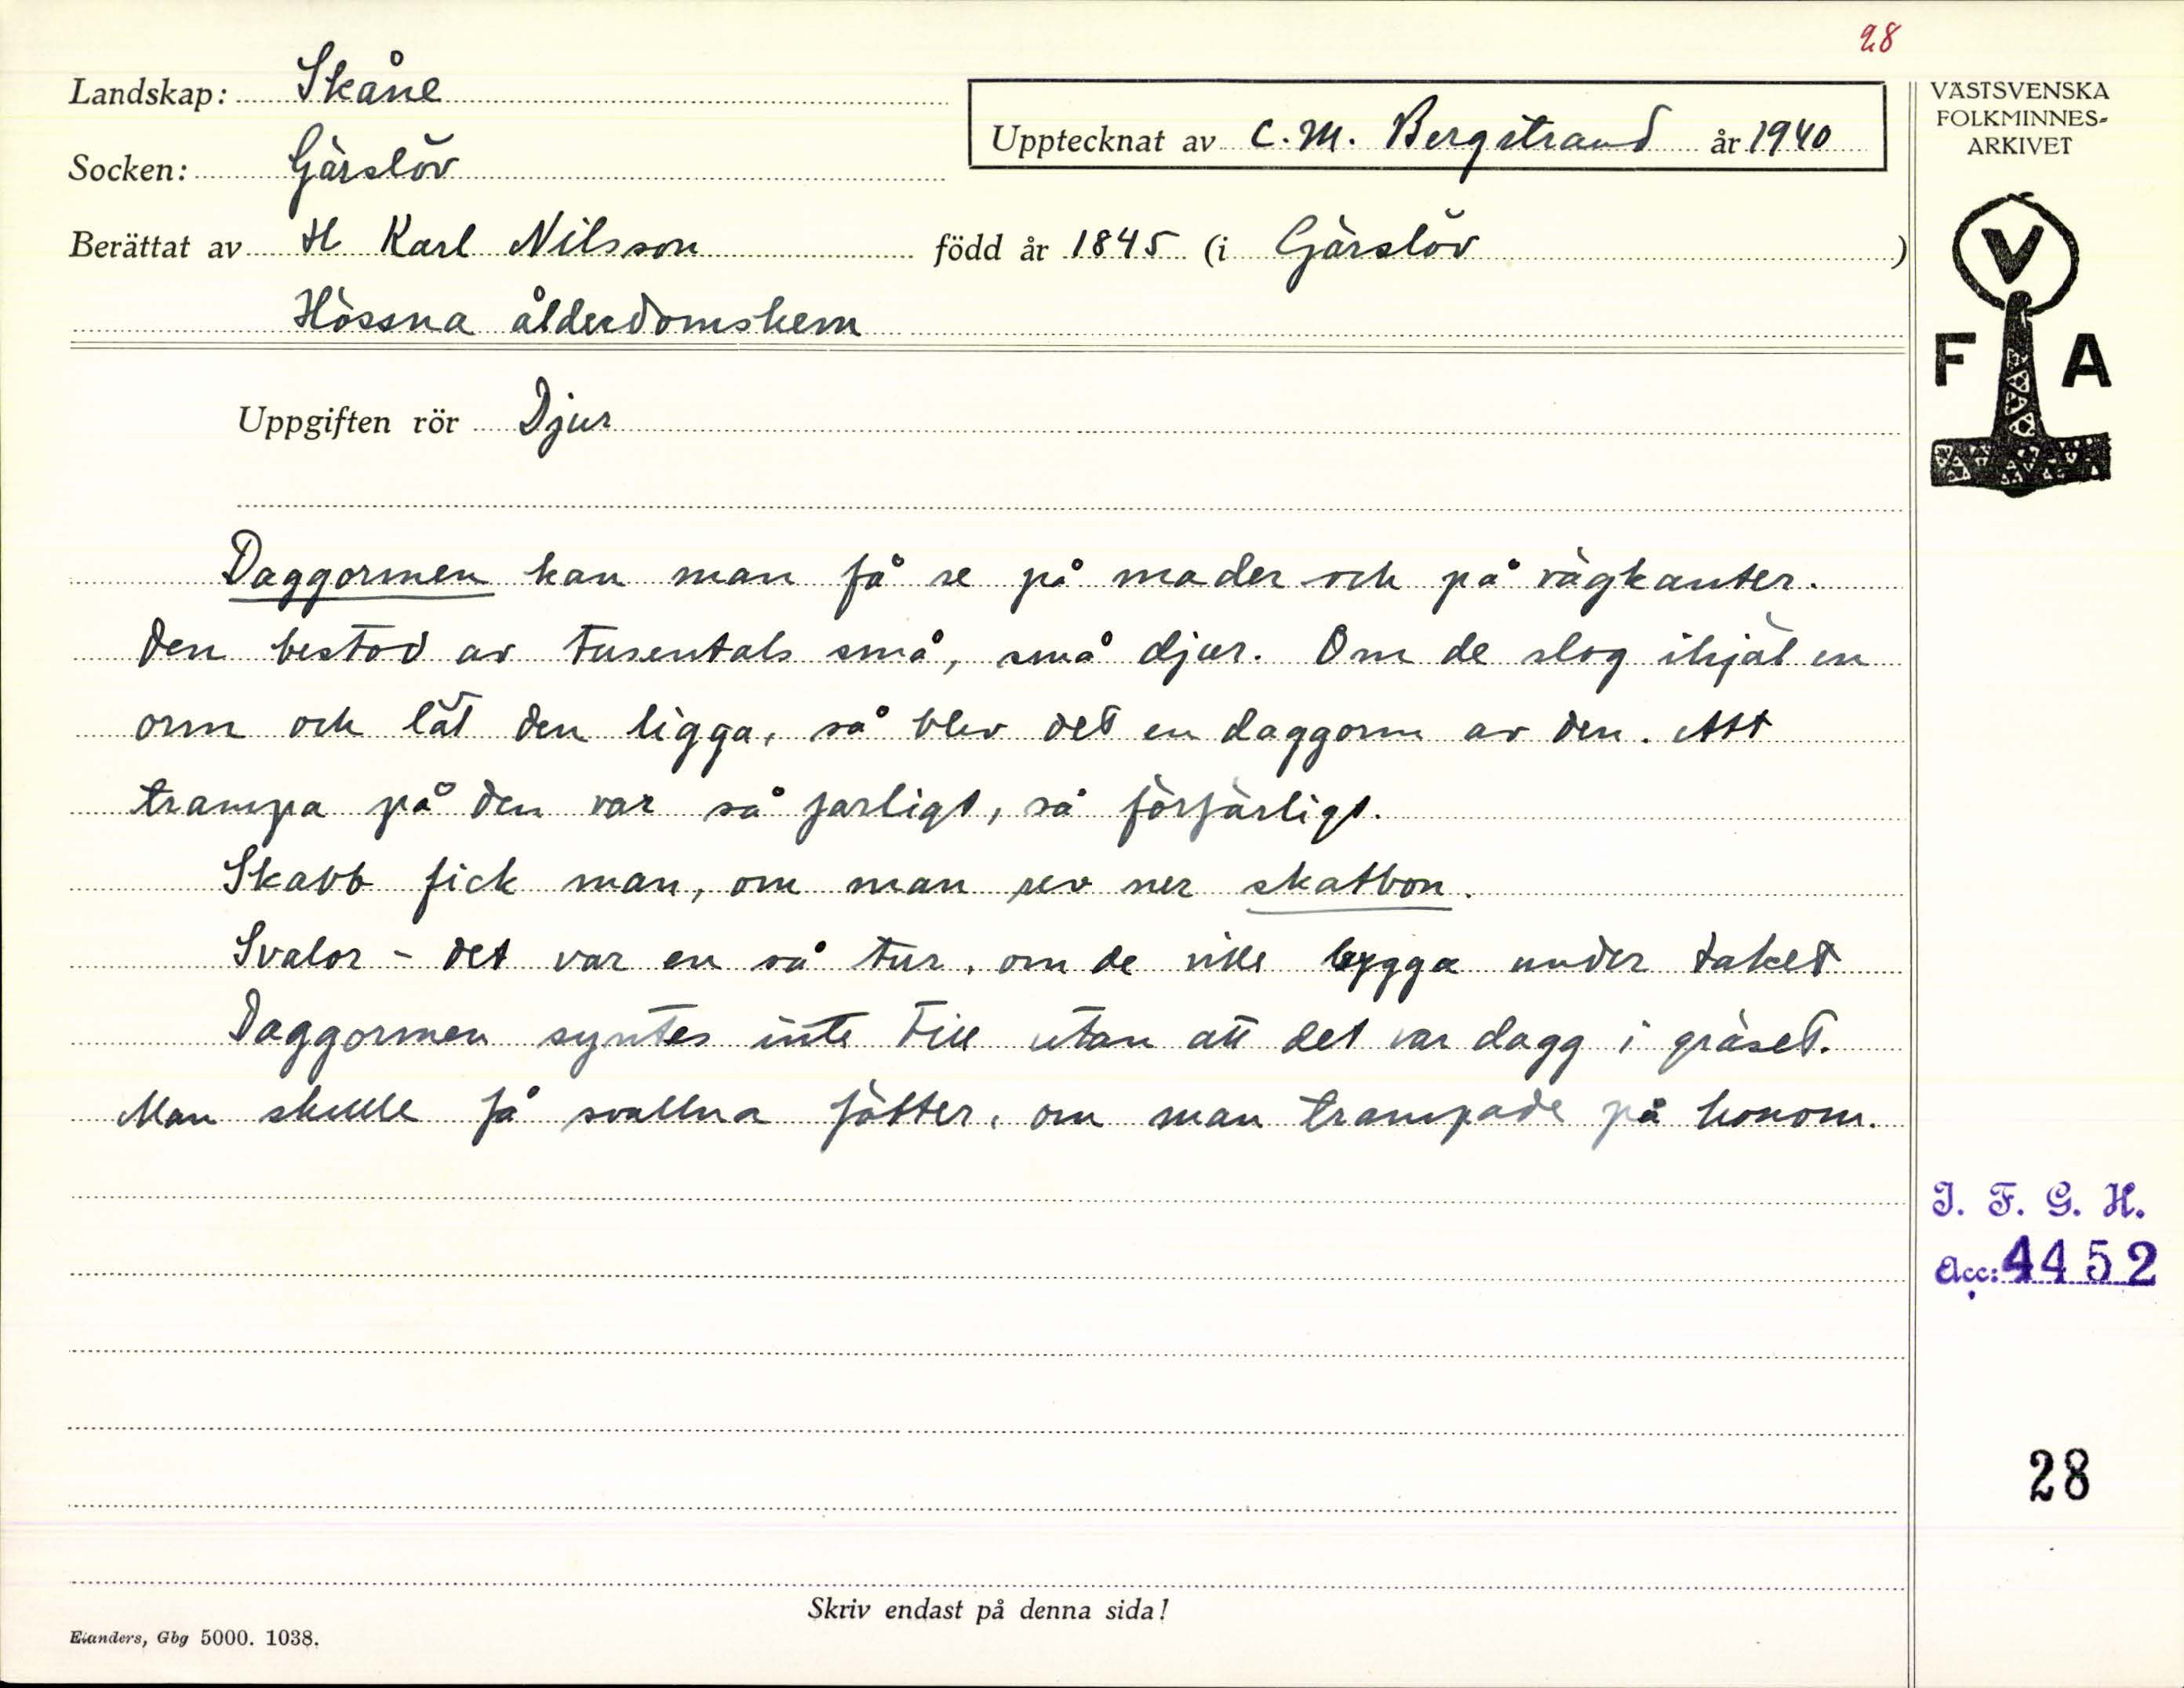 28
Landskap: Skåne
Upptecknat av C. M. Bergstrand år 1940
Socken: Gärslöv
Berättat av H Karl Nilsson född år 1845 (i Gärslöv)
Hössna ålderdomshem
Uppgiften rör Djur
Daggormen kan man få se på mader och på vägkanter.
Den bestod av tusentals små, små djur. Om de slog ihjäl en
orm och lät den ligga, så blev det en daggorm av den. Att
trampa på den var så farligt, så förfärligt.
Skabb fick man, om man rev ner skatbon.
Svalor - det var en så tur, om de ville bygga under taket
Daggormen syntes inte till utan att det var dagg i gräset.
Man skulle få svallna fötter, om man trampade på honom.
Skriv endast på denna sida!
Elanders, Gbg 5000. 1038.
VÄSTSVENSKA
FOLKMINNES-
ARKIVET
V
F A
I. F. G. H.
Acc: 4452
28